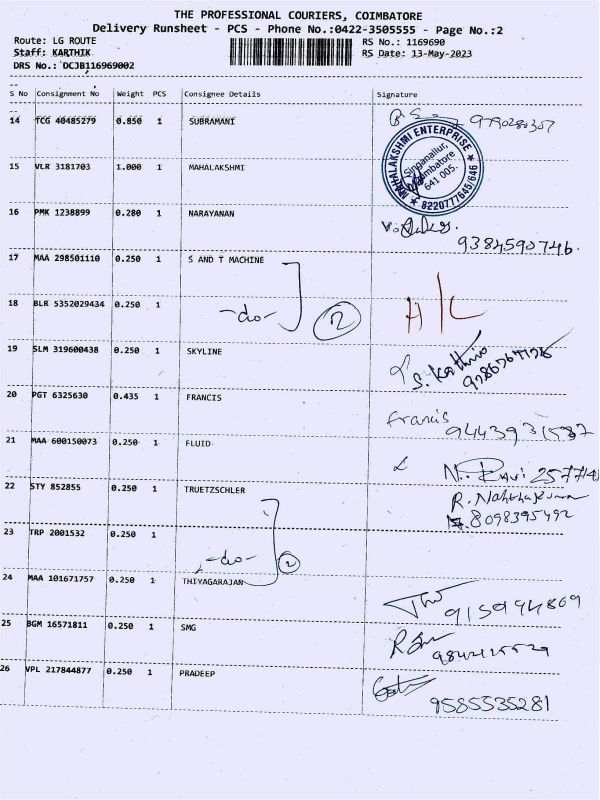 THE PROFESSIONAL COURIERS, COIMBATORE
Delivery Runsheet - PCS - Phone No.:0422-3505555 - Page No.:2
Route: LG ROUTE RS No.: 1169690
Staff: KARTHIK RS Date: 13-May-2023
DRS No.: DCJB116969002
S No Consignment No Weight PCS Consignee Details Signature
14 TCG 40485279 0.850 1 SUBRAMANI 9790280307
MAHALAKSHMI ENTERPRISE
Singanallur,
Coimbatore
641 005.
8220777645/646
15 VLR 3181703 1.000 1 MAHALAKSHMI
16 PMK 1238899 0.280 1 NARAYANAN
9384590746.
17 MAA 298501110 0.250 1 S AND T MACHINE
18 BLR 5352029434 0.250 1 -do- 2 H/L
19 SLM 319600438 0.250 1 SKYLINE
S. Karthio
20 PGT 6325630 0.435 1 FRANCIS Francis
21 MAA 600150073 0.250 1 FLUID N. Ravi
22 STY 852855 0.250 1 TRUETZSCHLER
8098395492
23 TRP 2001532 0.250 1 -do- 2
24 MAA 101671757 0.250 1 THIYAGARAJAN
25 BGM 16571811 0.250 1 SMG
26 VPL 217844877 0.250 1 PRADEEP
9585535281